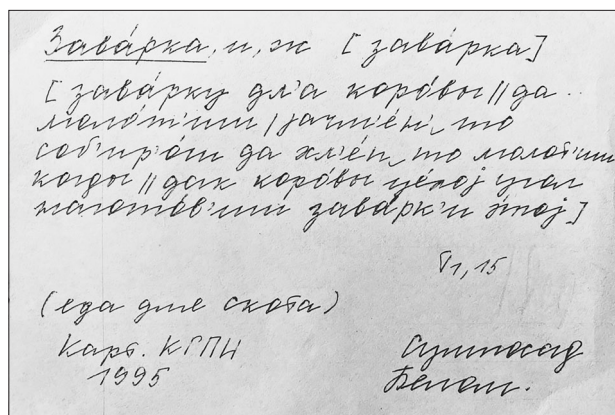 Зава́рка, и, ж [зава́рка]
[зава́рку дл'а коро́вы || да
моло́т'им / јачме́н', то
соб'ира́ш да хл'еп, то молот'им
когды || дак коро́вы це́лој угал
нагото́в'им зава́рк'и э́тој]
Т1, 15
(еда для скота)
Карт. КГПИ
1995
Сумпосад
Белом.